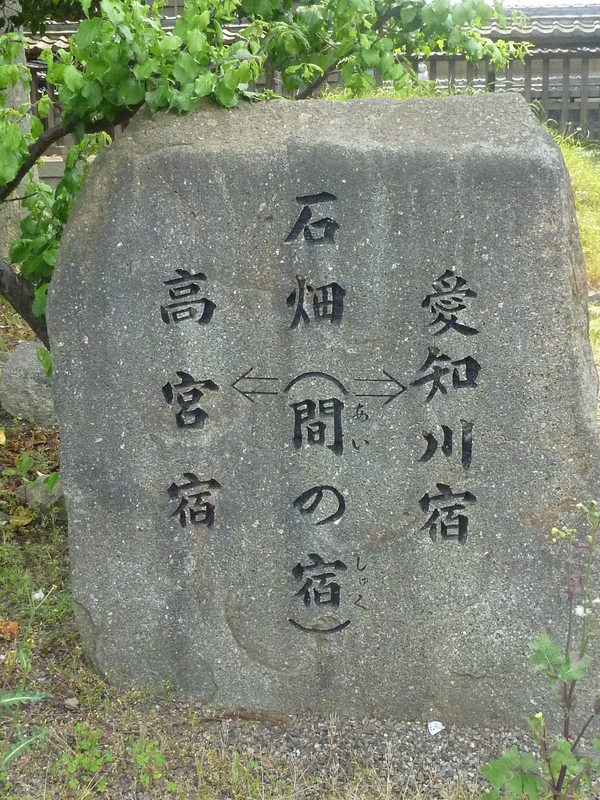 愛知川宿
⇒
石畑（間の宿）
あい
しゅく
⇐
高宮宿